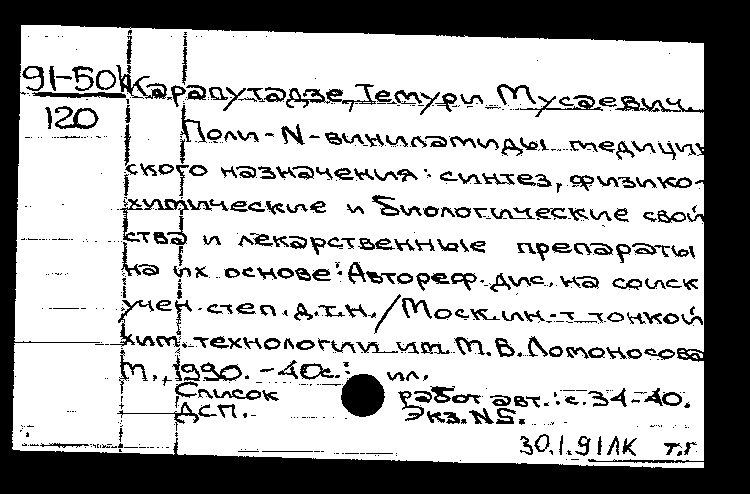 91-50к Карапутадзе, Темури Мусаевич.
120
Поли-N-виниламиды медицин
ского назначения: синтез, физико-
химические и биологические свой
ства и лекарственные препараты
на их основе: Автореф. дис. на соиск
учен. степ. д.т.н. / Моск. ин-т тонкой
хим. технологии им. М.В. Ломоносова
М., 1990. - 40с.: ил.
Список работ авт.: с. 34-40.
ДСП. Экз. N5.
30.1.91 ЛК т.г